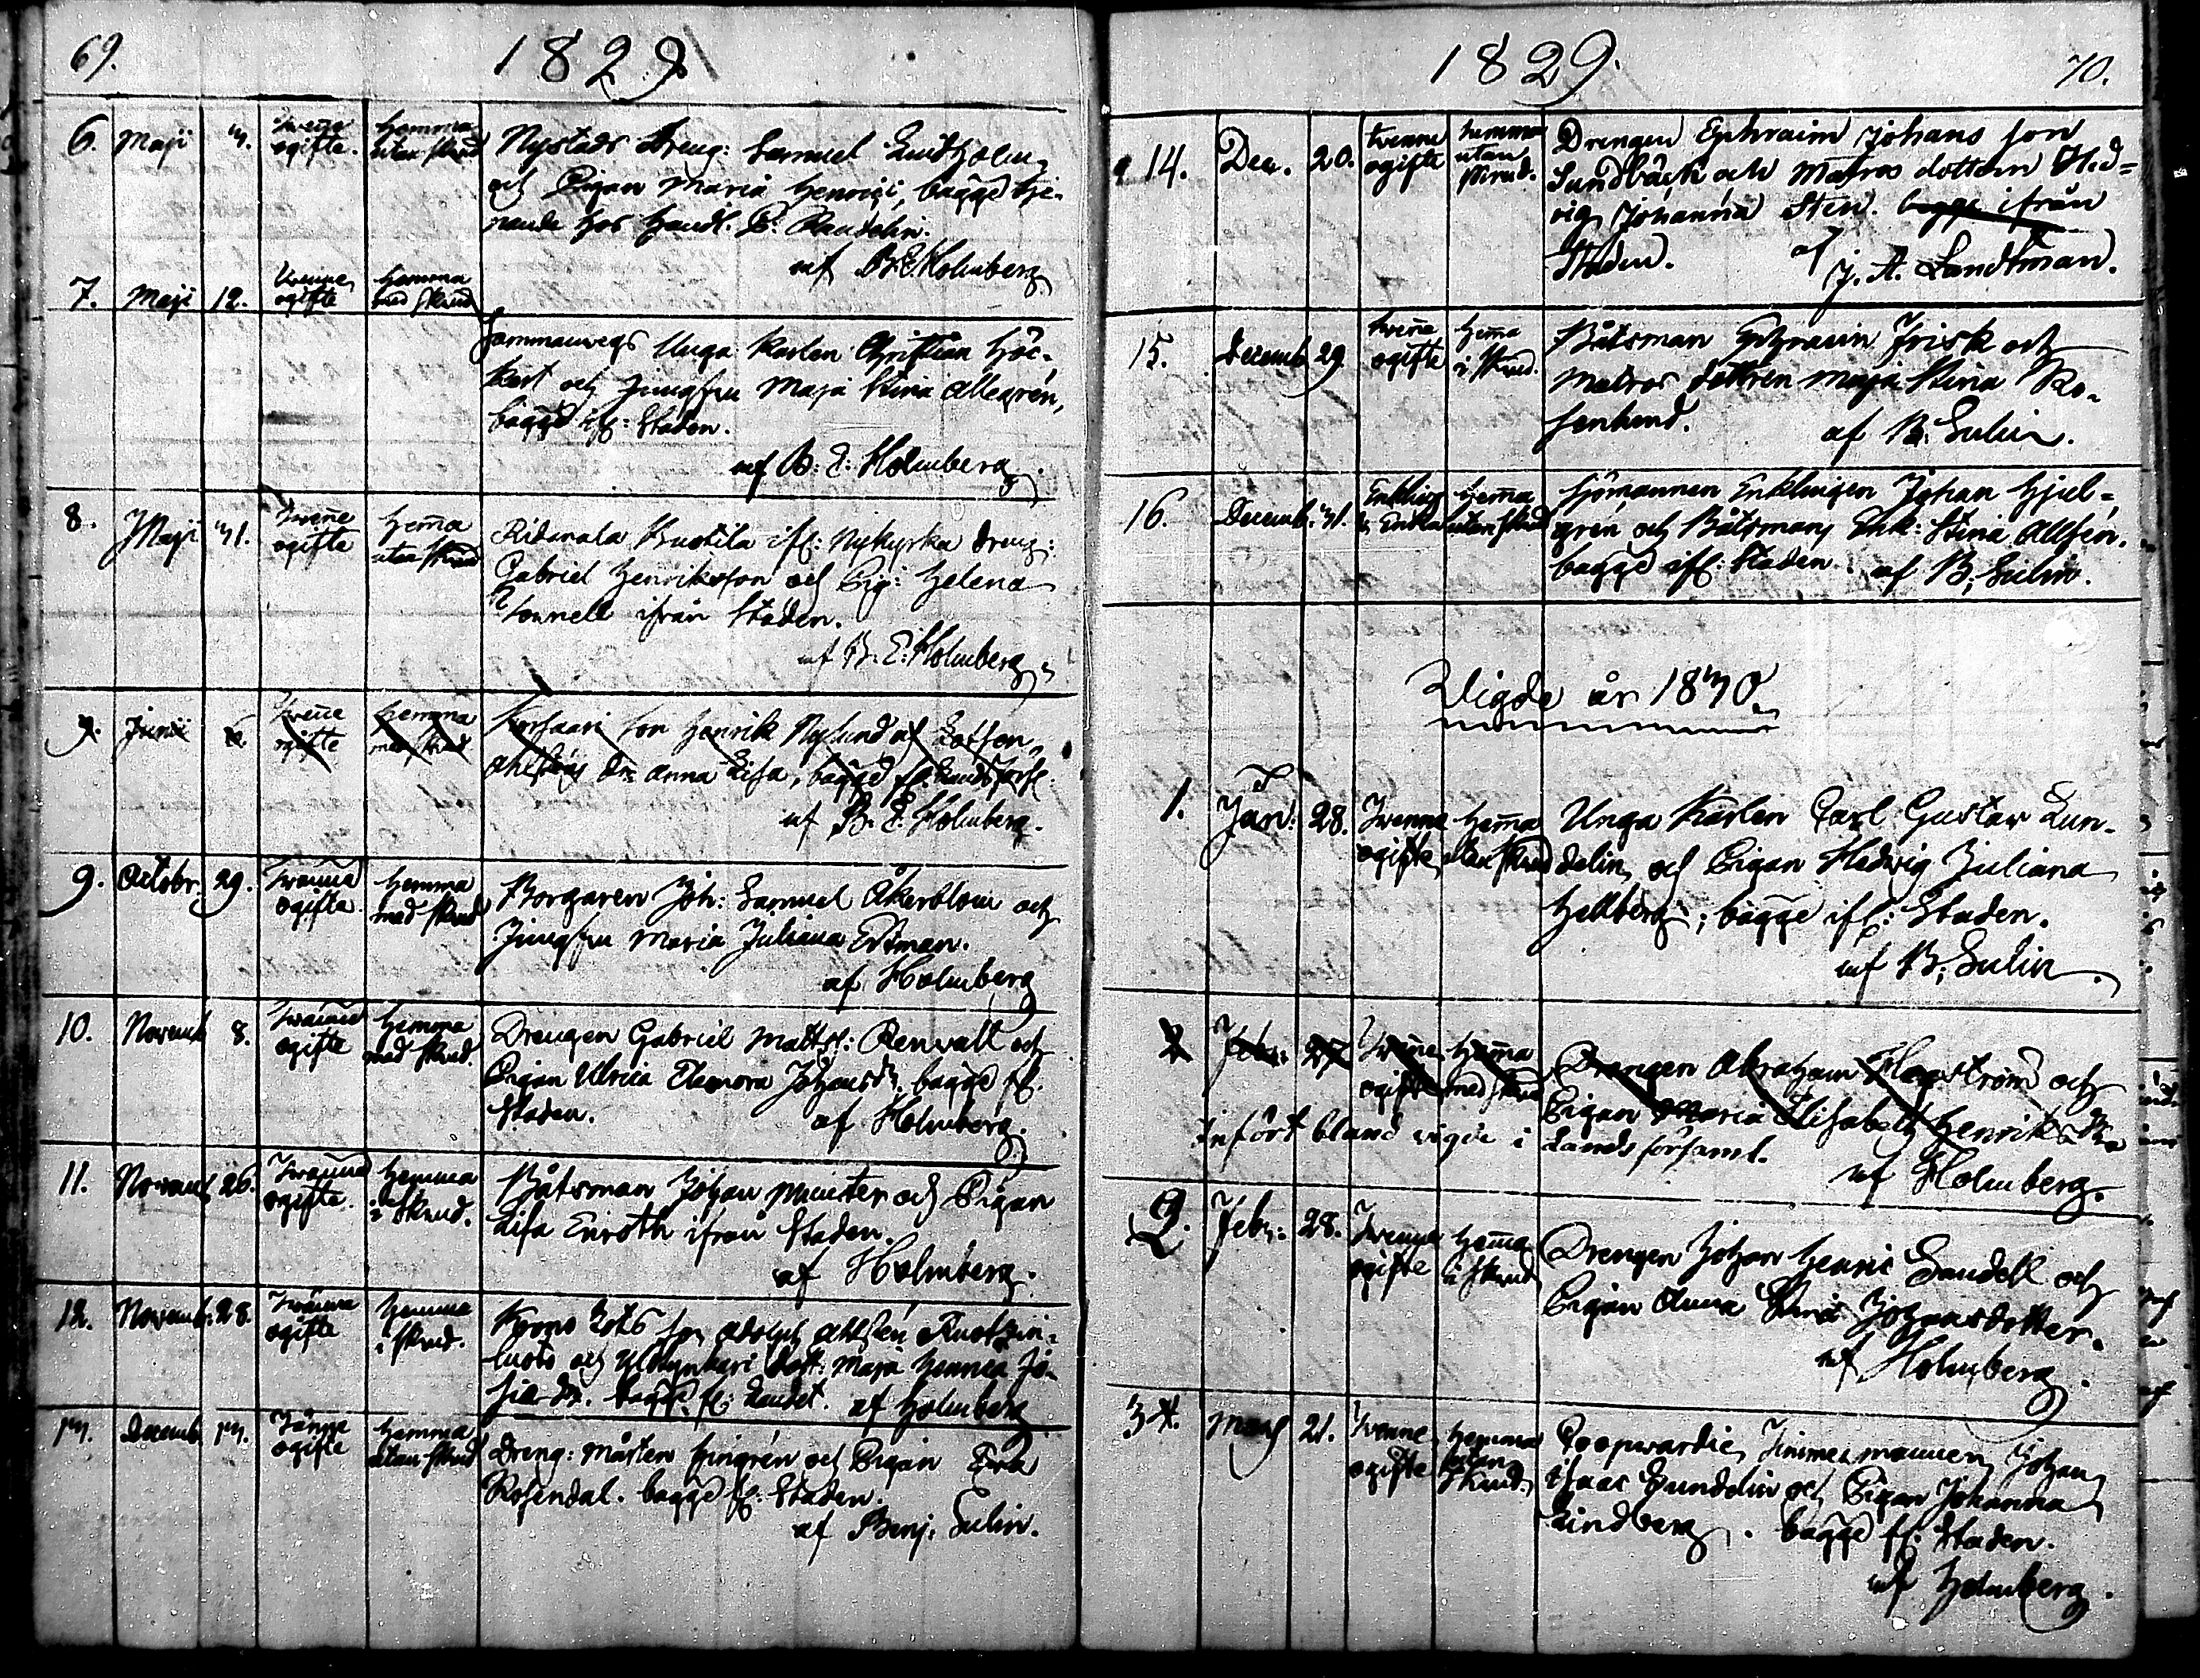 69.
1829
6. Maji 3. twenne ogifte. hemma utan skrud
Nystads Dreng: Samuel Lindholm
och Pigan Maria Henrici, bägge tje-
nande hos Handl. B. Randelin.
af B. E. Holmberg
7. Maji 12. twenne ogifte hemma med skrud
Unga Karlen Christian
och Jungfru Maja Stina Allegrén,
bägge ifr: Staden.
af B: E: Holmberg.
8. Maji 31. Twen̅e ogifte hem̅a utan skrud
Ridanala Kustila ifr: Nykyrka dreng:
Gabriel Henriksson och Pig: Helena
ifrån Staden.
af B. E: Holmberg.
9. Junii 6. Twen̅e ogifte hemma med skrud
son Henrik Nylund och
Anna Lisa, bägge fr.
af B. E. Holmberg.
9. Octobr. 29. Twenne ogifta hemma med skrud
Borgaren Joh: Samuel Åkerblom och
Jungfru Maria Juliana Ertman.
af Holmberg
10. Novemb 8. Twenne ogifte hemma med skrud.
Drengen Gabriel Matts: Renvall och
Pigan Ulrica Eleonora Johansdr. bägge fr.
Staden. af Holmberg.
11. Novemb 26. Twenne ogifte. hemma i skrud.
Båtsman Johan Munster och Pigan
Lisa Enroth ifrån Staden.
af Holmberg.
12. Novemb: 28. Twenne ogifte hemma i skrud.
Lots son Adolph Allsén
och dott: Maja
bägge fr: Landet. af Holmberg
13. Decemb. 13. ogifte hemma utan skrud
Dreng: Mårten Fingrén och Pigan Eva
Rosendal. bägge fr: Staden.
af Benj. Sulin.
1829.
70.
14. Dec. 20. twenne ogifte hemma utan skrud.
Drengen Ephraim Johans son
Sundbäck och Matros dottern Hed=
vig Johanna Sten. bägge ifrån
Staden. af
J. A. Landtman.
15. Decemb 29. twen̅e ogifte hem̅a i skrud.
Båtsman Ephraim Frisk och
Matros dottren Maja Stina Ro-
senlund. af B. Sulin.
16. Decemb. 31. Enkling o. Enka hem̅a utan skrud
Sjömannen Enklingen Johan Hjel=
grén och Båtsmans Enk: Stina Allsén.
bägge ifr: Staden. af B. Sulin.
Wigde år 1830.
1. Jan: 28. Twenne ogifte hem̅a utan skrud
Unga Karlen Carl Gustav Lun-
delin, och Pigan Hedwig Juliana
Hellberg; bägge ifr: Staden.
af B. Sulin.
2 Febr: 27 Twen̅e ogifte hem̅a med skrud
Drengen Abraham Hagström och
Pigan Maria Elisabeth Henriksdr
Infört bland vigde i Lands församl.
af Holmberg.
2. Febr: 28. Twenne ogifte hem̅a i skrud
Drengen Johan Henric Sandell och
Pigan Anna Stina Johansdotter.
af Holmberg.
3 4. Mars 21. twenne ogifte hemma utan skrud.
Coopvardie Timmermannen Johan
Isaac Gundelin och Pigan Johanna
Lindberg. bägge fr: Staden.
af Holmberg.